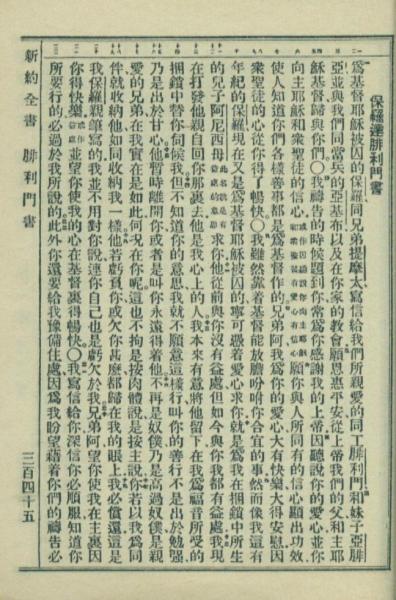 保羅達腓利門書
爲基督耶穌被囚的保羅同兄弟提摩太寫信給我們所親愛的同工腓利門和妹子亞腓
亞並與我們同當兵的亞基布以及在你家的教會願恩惠平安從上帝我們的父和主耶
穌基督歸與你們〇我禱告的時候題到你常爲你感謝我的上帝因聽說你的愛心並你
向主耶穌和衆聖徒的信心或作因聽說你向主耶穌和衆聖徒有愛心有信心願你與人所同有的信心顯出功效
使人知道你們各樣善事都是爲基督作的兄弟阿我爲你的愛心大有快樂大得安慰因
衆聖徒的心從你得了暢快〇我雖然靠着基督能放膽吩咐你合宜的事然而像我這有
年紀的保羅現在又是爲基督耶穌被囚的寧可憑着愛心求你就是爲我在捆鎖中所生
的兒子阿尼西母此名就是有益處的意思求你他從前與你沒有益處但如今與你我都有益處我現
在打發他親自回你那裏去他是我心上的人我本來有意將他留下在我爲福音所受的
捆鎖中替你伺候我但不知道你的意思我就不願意這樣行叫你的善行不是出於勉強
乃是出於甘心他暫時離開你或者是叫你永遠得着他不再是奴僕乃是高過奴僕是親
愛的兄弟在我實在是如此何況在你呢這也不拘是按肉體說是按主說你若以我爲同
伴就收納他如同收納我一樣他若虧負你或欠你甚麽都歸在我的賬上我必償還這是
我保羅親筆寫的我並不用對你說連你自己也是虧欠於我兄弟阿望你使我在主裏因
你得快樂或作益處並望你使我的心在基督裏得暢快〇我寫信給你深信你必順服知道你
所要行的必過於我所說的此外你還要給我豫備住處因爲我盼望藉着你們的禱告必
新約全書 腓利門書 三百四十五